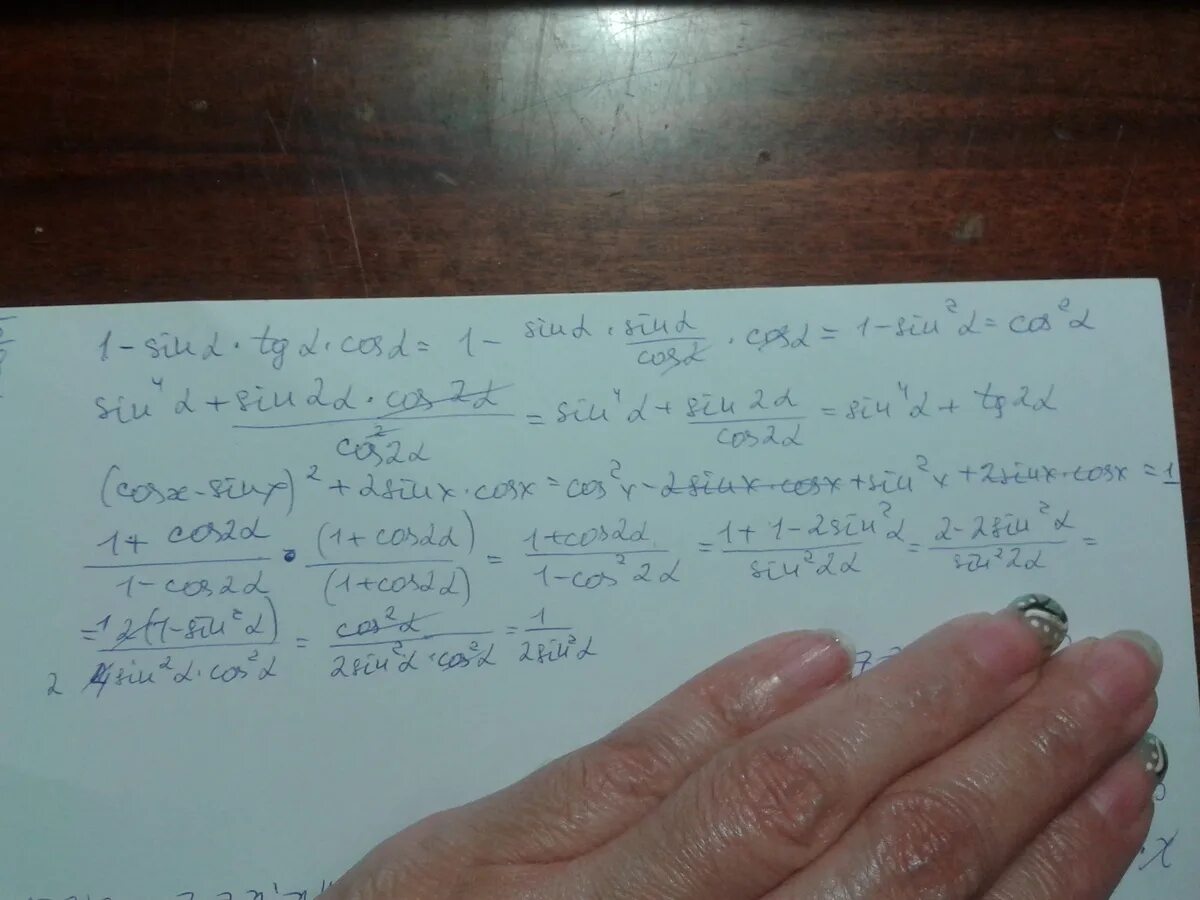 1 - sin α · tg α · cos α = 1 - sin α · sin α / cos α · cos α = 1 - sin² α = cos² α
sin⁴ α + sin 2α · cos 2α / cos² 2α = sin⁴ α + sin 2α / cos 2α = sin⁴ α + tg 2α
(cos x - sin x)² + 2 sin x · cos x = cos² x - 2 sin x · cos x + sin² x + 2 sin x · cos x = 1
1 + cos 2α / 1 - cos 2α · (1 + cos 2α) / (1 + cos 2α) = 1 + cos 2α / 1 - cos² 2α = 1 + 1 - 2 sin² α / sin² 2α = 2 - 2 sin² α / sin² 2α =
= 1 2(1 - sin² α) / 2 4 sin² α · cos² α = cos² α / 2 sin² α · cos² α = 1 / 2 sin² α
· x